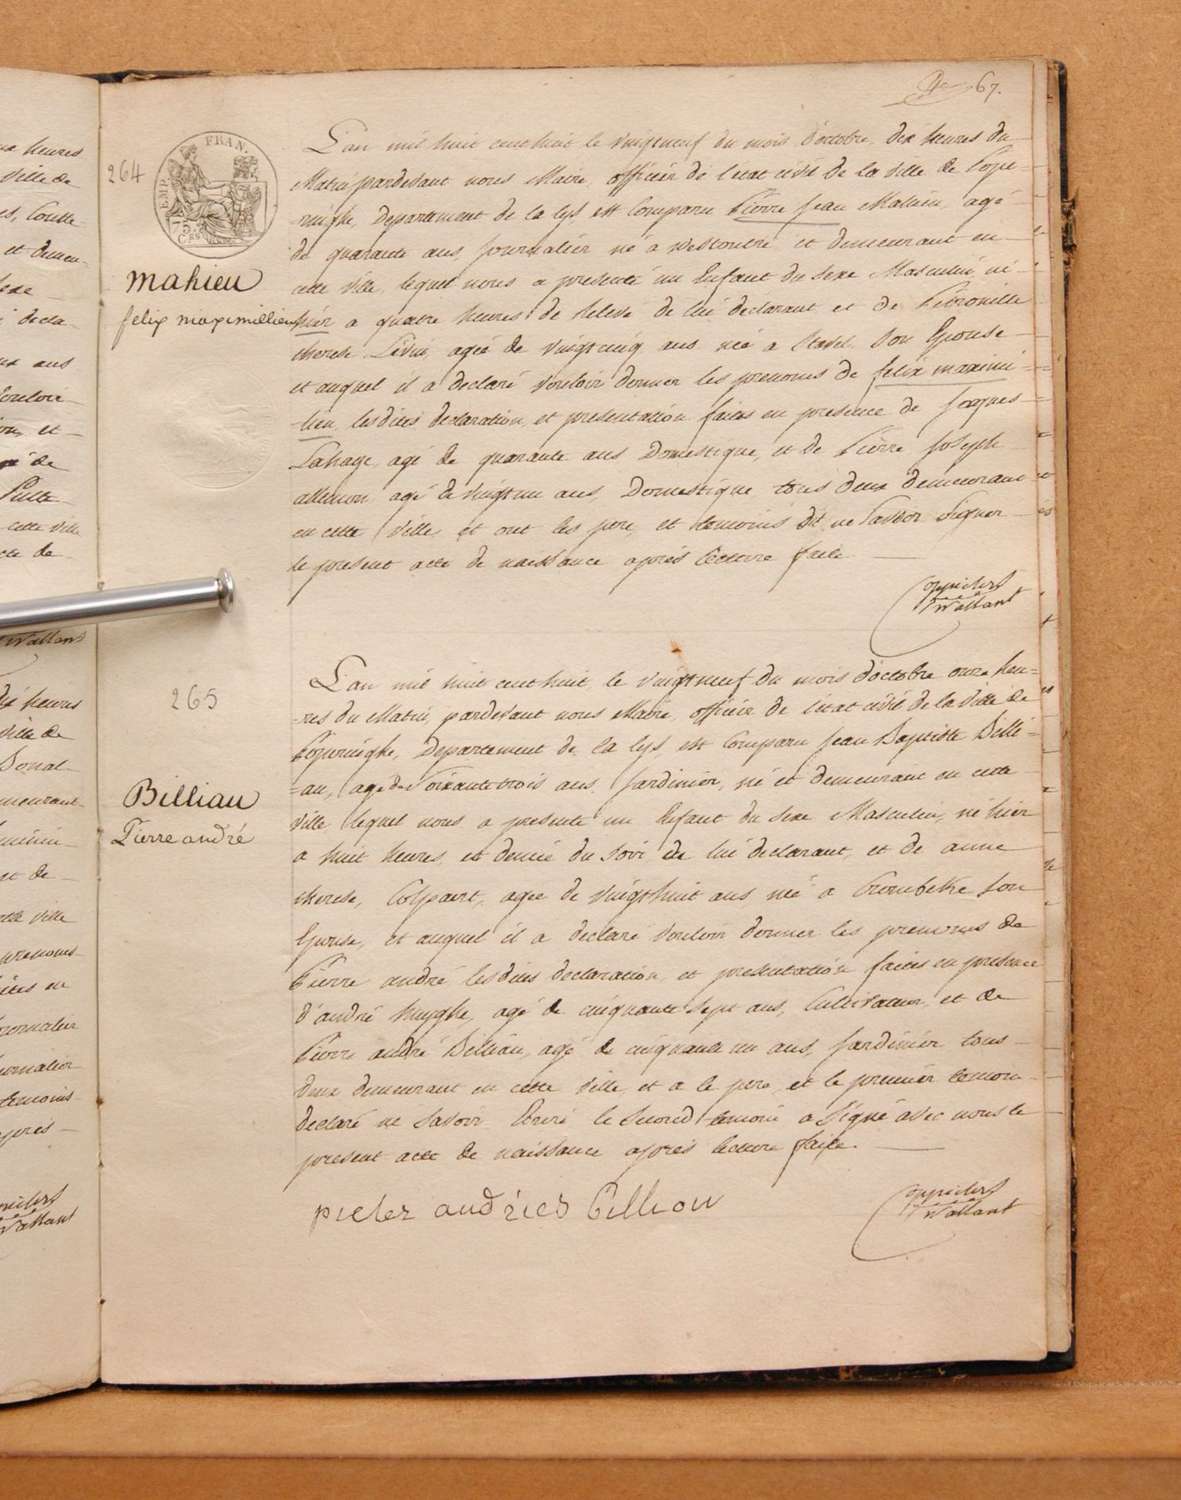 67.
264
EMP. FRAN.
75 C.
mahieu
felix maximillien
L'an mil huit cent huit le vingtneuf du mois d'octobre, dix heures du
Matin, pardevant nous Maire, officier de l'état civil de la ville de Pope-
ringhe, Departement de la lys est Comparu Pierre Jean Mahieu, agé
de quarante ans, journalier né a Westoutre et demeurant en
cette Ville, lequel nous a presenté un Enfant du sexe Masculin, né
hier a quatre heures de relevé de lui declarant et de Petronille
therese agée de vingtcinq ans née a Stavel Son Epouse
et auquel il a declaré vouloir donner les prenoms de felix maximi-
lien, lesdites declaration, et presentation faites en presence de Jacques
Lahaye, agé de quarante ans Domestique, et de Pierre Joseph
agé de vingtun ans, Domestique, tous deux demeurant
en cette Ville, et ont les pere, et temoins dit ne savoir signer
le present acte de naissance après lecture faite.
Wallant
265
Billiau
Pierre andré
L'an mil huit cent huit, le vingtneuf du mois d'octobre onze heu-
-res du Matin, pardevant nous Maire, officier de l'état civil de la Ville de
Poperinghe, Departement de la lys est Comparu Jean Baptiste Billi-
-au, agé de soixante trois ans, Jardinier, né et demeurant en cette
Ville lequel nous a presenté un Enfant du sexe Masculin, né hier
a huit heures, et demie du soir de lui declarant, et de anne
therese, Colpaert, agée de vingthuit ans née a Crombeke son
Epouse, et auquel il a declaré vouloir donner les prenoms de
Pierre andré, lesdites declaration, et presentation faites en presence
d'andré huyghe, agé de cinquante sept ans, Cultivateur, et de
Pierre andré Billiau, agé de cinquante un ans, Jardinier tous
deux demeurant en cette Ville, et a le pere, et le premier temoin
declaré ne savoir Ecrire le second temoin a signé avec nous le
present acte de naissance après lecture faite.
pieter andries billiau
Wallant